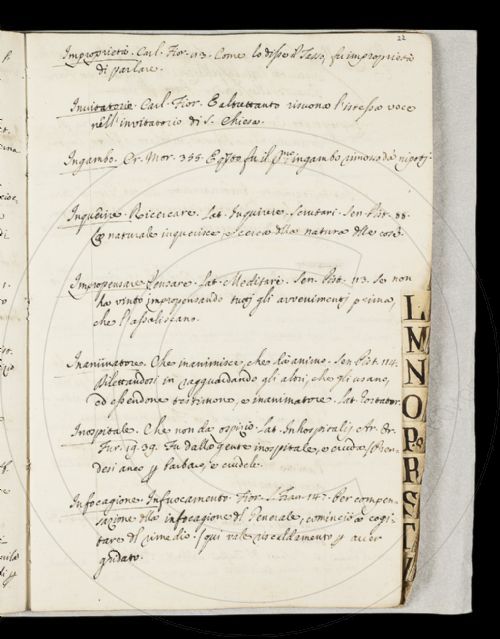 22
Improprietà. Carl. Fior. 43. Come lo disse il Tasso, fu improprietà
di parlare.
Invitatorio. Carl. Fior. E altrettanto risuona l'istessa voce
nell'invitatorio di S. Chiesa.
Ingambo. Cr. Mor. 355. E qsto fu il pmo ingambo
Inquerire Ricercare. Lat. Inquirere. Scrutari. Sen. Pist. 88.
naturale inquerisce, e cerca della natura delle cose.
Impropensare Pensare. Lat. Meditari. Sen. Pist. 113. Se non
ha vinto impropensando tutti gli avvenimenti prima,
che l'assaliscano.
Inanimatore. Che inanimisce, che dà animo. Sen. Pist. 114.
Dilettandosi in ragguardando gli altri, che gli usano,
ed essendone testimone, e inanimatore. Lat. Hortator.
Inospitale. Che non da ospizio. Lat. Inhospitalis. Ar. Or.
Fur. 19. 39. Fu dalla gente inospitale, e cruda
e crudele.
Infocagione Infuocamento. Fior. S. Fran. 147. Per compen-
sazione della infocagione del Penerale, cominciò a cogi-
tare del rimedio. qui vale riscaldamento p aver
gridato.
L
M
N
O
P
R
S
T